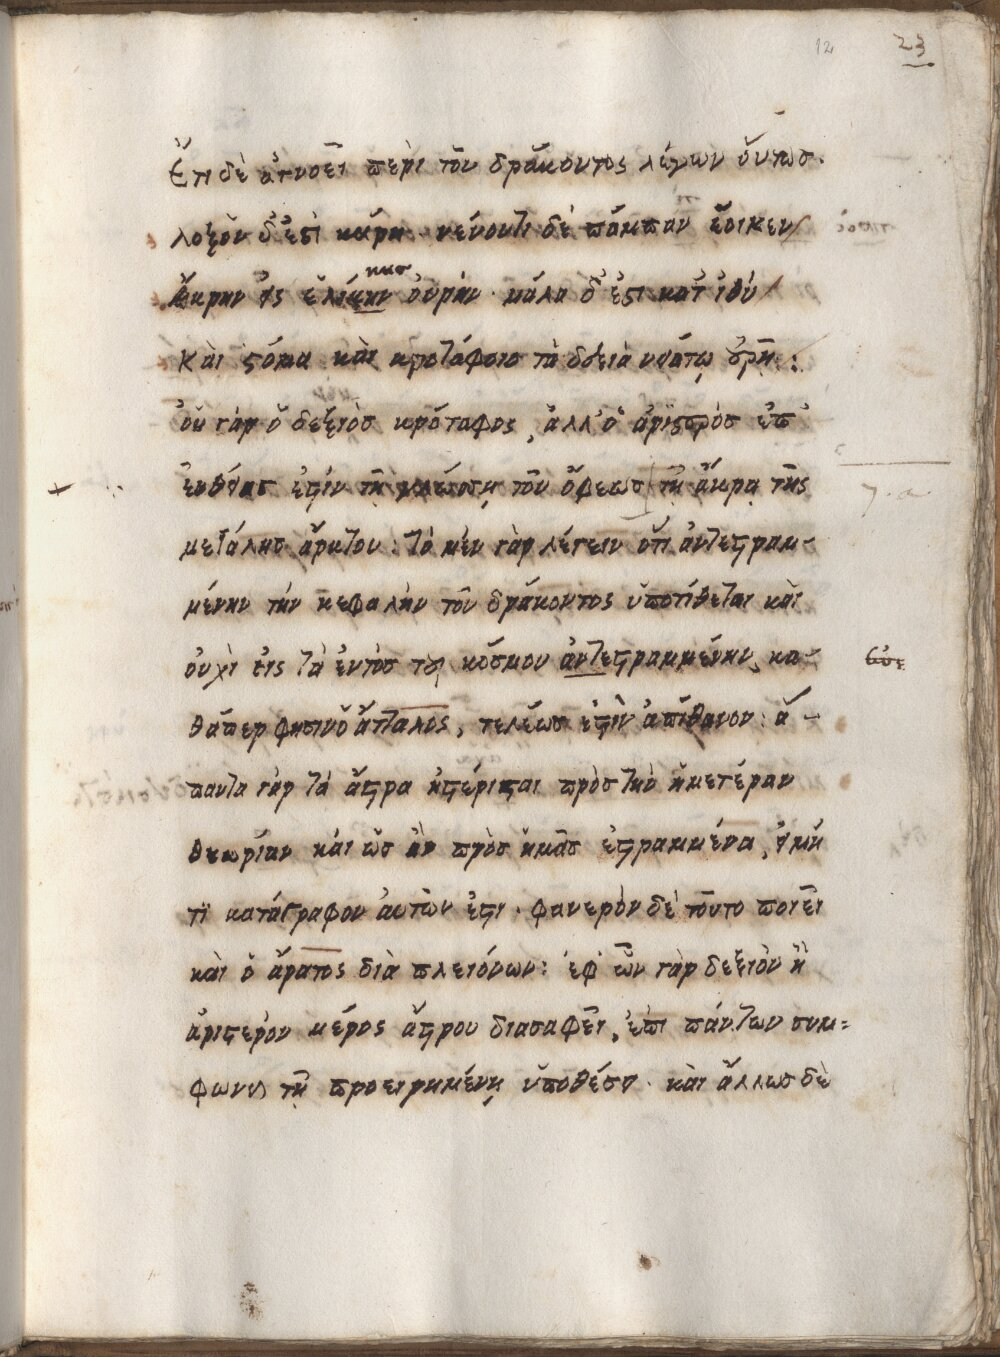 12 23
Ἔτι δὲ ἀγνοεῖ περὶ τοῦ δράκοντος λέγων οὕτωσ.
λοξὸν δ' ἐστὶ κάρη νεύοντι δὲ πάμπαν ἔοικεν
ἄκρην εἰς ἑλίκην οὐρήν. μάλα δ' ἐστι κατ' ἰθὺ
κησ
καὶ στόμα καὶ κροτάφοιο τὰ δεξιὰ νειάτῳ οὐρῇ:
οὐ γὰρ ὁ δεξιὸσ κρόταφος, ἀλλ' ὁ ἀριστερὸσ ἐπ'
ευθείασ ἐστίν τῇ γλώσσῃ τοῦ ὄφεωσ τῇ ἄκρᾳ τῆς
μεγάλησ ἄρκτου: τὸ μὲν γὰρ λέγειν ὅτι ἀντεστραμ-
μένην τὴν κεφαλὴν τοῦ δράκοντος ὑποτίθεται καὶ
οὐχὶ εἰς τὰ ἐντὸσ τοῦ κόσμου ἀντεστραμμένην, κα-
θάπερ φησιν ὁ ἄτταλος, τελέωσ ἐστὶν ἀπίθανον: ἅ-
παντα γὰρ τὰ ἄστρα ἠστέρισται πρὸσ τὴν ἡμετέραν
θεωρίαν καὶ ὡσ ἂν πρὸσ ἡμᾶσ ἐστραμμένα, εἰ μή
τι κατάγραφον ἀυτῶν ἐστι. φανερὸν δὲ τοῦτο ποιεῖ
καὶ ὁ ἄρατος διὰ πλειόνων: ἐφ' ὧν γὰρ δεξιὸν ἢ
ἀριστερὸν μέρος ἄστρου διασαφεῖ, ἐπὶ πάντων συμ=
φωνεῖ τῇ προειρημένῃ ὑποθέσει. καὶ ἄλλωσ δὲ